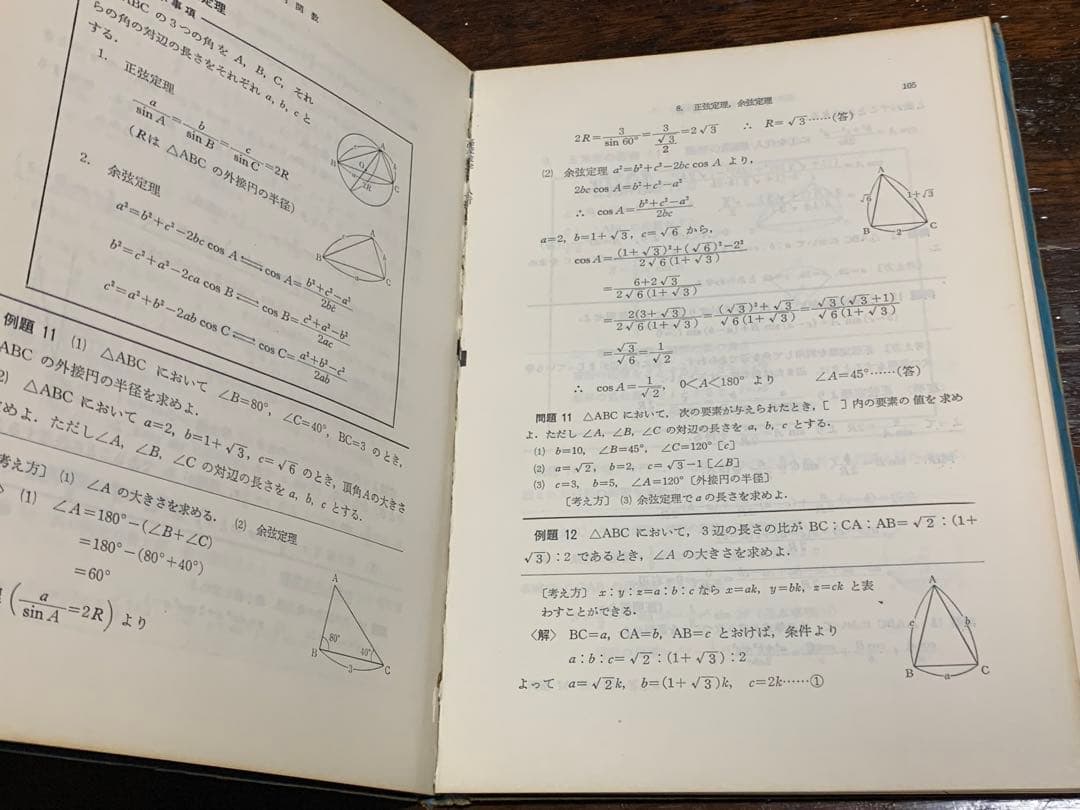 関数
定理
事項
ABC の3つの角を A, B, C, それ
らの角の対辺の長さをそれぞれ a, b, c と
する.
1. 正弦定理
a/sin A = b/sin B = c/sin C = 2R
(R は △ABC の外接円の半径)
A
B
C
O
a
2R
2. 余弦定理
a²=b²+c²−2bc cos A ⟺ cos A= b²+c²−a²/2bc
b²=c²+a²−2ca cos B ⟺ cos B= c²+a²−b²/2ac
c²=a²+b²−2ab cos C ⟺ cos C= a²+b²−c²/2ab
A
B
C
例題 11 (1) △ABC において ∠B=80°, ∠C=40°, BC=3 のとき,
ABC の外接円の半径を求めよ.
2) △ABC において a=2, b=1+√3, c=√6 のとき, 頂角 A の大きさ
求めよ. ただし ∠A, ∠B, ∠C の対辺の長さを a, b, c とする.
考え方] (1) ∠A の大きさを求める. (2) 余弦定理
〉 (1) ∠A=180°−(∠B+∠C)
=180°−(80°+40°)
=60°
(a/sin A =2R) より
A
80°
40°
B
3
C
8. 正弦定理, 余弦定理
105
2R= 3/sin 60° = 3/(√3/2) =2√3 ∴ R=√3……(答)
(2) 余弦定理 a²=b²+c²−2bc cos A より,
2bc cos A=b²+c²−a²
∴ cos A= b²+c²−a²/2bc
A
√6
1+√3
B
2
C
a=2, b=1+√3, c=√6 から,
cos A= (1+√3)²+(√6)²−2²/2√6(1+√3)
= 6+2√3/2√6(1+√3)
= 2(3+√3)/2√6(1+√3) = (√3)²+√3/√6(1+√3) = √3(√3+1)/√6(1+√3)
= √3/√6 = 1/√2
∴ cos A= 1/√2, 0<A<180° より ∠A=45°……(答)
問題 11 △ABC において, 次の要素が与えられたとき, [ ] 内の要素の値を求め
よ. ただし ∠A, ∠B, ∠C の対辺の長さを a, b, c とする.
(1) b=10, ∠B=45°, ∠C=120° [c]
(2) a=√2, b=2, c=√3−1 [∠B]
(3) c=3, b=5, ∠A=120° [外接円の半径]
[考え方] (3) 余弦定理で a の長さを求めよ.
例題 12 △ABC において, 3辺の長さの比が BC:CA:AB=√2:(1+
√3):2 であるとき, ∠A の大きさを求めよ.
[考え方] x:y:z=a:b:c なら x=ak, y=bk, z=ck と表
わすことができる.
〈解〉 BC=a, CA=b, AB=c とおけば, 条件より
a:b:c=√2:(1+√3):2
よって a=√2k, b=(1+√3)k, c=2k……①
A
c
b
B
a
C